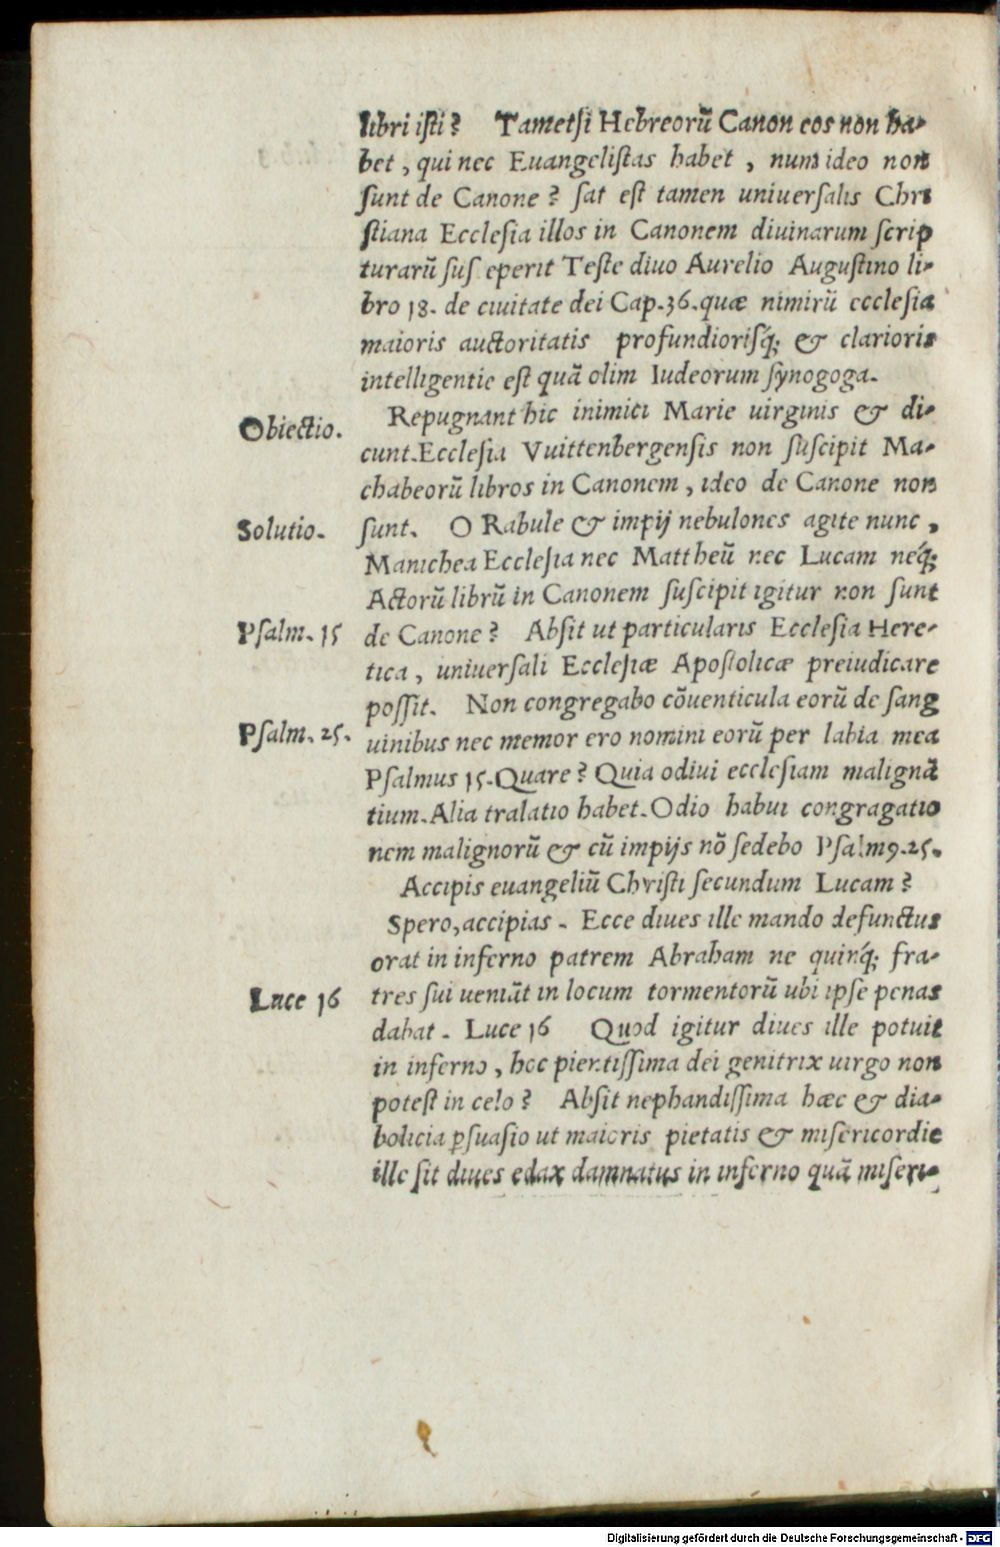 libri iſti? Tametſi Hebreorū Canon eos non ha-
bet, qui nec Euangeliſtas habet, num ideo non
ſunt de Canone? ſat eſt tamen uniuerſalis Chri
ſtiana Eccleſia illos in Canonem diuinarum ſcrip
turarū ſuſ eperit Teſte diuo Aurelio Auguſtino li-
bro 18. de ciuitate dei Cap.36.quæ nimirū eccleſia
maioris auctoritatis profundioriſq́; & clarioris
intelligentie eſt quā olim Iudeorum ſynogoga.
Repugnant hic inimici Marie uirginis & di-
Obiectio.
cunt.Eccleſia Vuittenbergenſis non ſuſcipit Ma-
chabeorū libros in Canonem, ideo de Canone non
Solutio.
ſunt. O Rabule & impij nebulones agite nunc,
Manichea Eccleſia nec Mattheū nec Lucam neq́;
Actorū librū in Canonem ſuſcipit igitur non ſunt
Pſalm. 15
de Canone? Abſit ut particularis Eccleſia Here-
tica, uniuerſali Eccleſiæ Apoſtolicæ preiudicare
poſſit. Non congregabo cōuenticula eorū de ſang
Pſalm. 25.
uinibus nec memor ero nomini eorū per labia mea
Pſalmus 15.Quare? Quia odiui eccleſiam malignā
tium.Alia tralatio habet.Odio habui congragatio
nem malignorū & cū impijs nō ſedebo Pſalm9.25.
Accipis euangeliū Chriſti ſecundum Lucam?
Spero,accipias. Ecce diues ille mando defunctus
orat in inferno patrem Abraham ne quinq́; fra-
Luce 16
tres ſui ueniāt in locum tormentorū ubi ipſe penas
dabat. Luce 16 Quod igitur diues ille potuit
in inferno, hoc pientiſſima dei genitrix uirgo non
poteſt in celo? Abſit nephandiſſima hæc & dia-
bolicia ꝑſuaſio ut maioris pietatis & miſericordie
ille ſit diues edax damnatus in inferno quā miſeri-
Digitalisierung gefördert durch die Deutsche Forschungsgemeinschaft - DFG